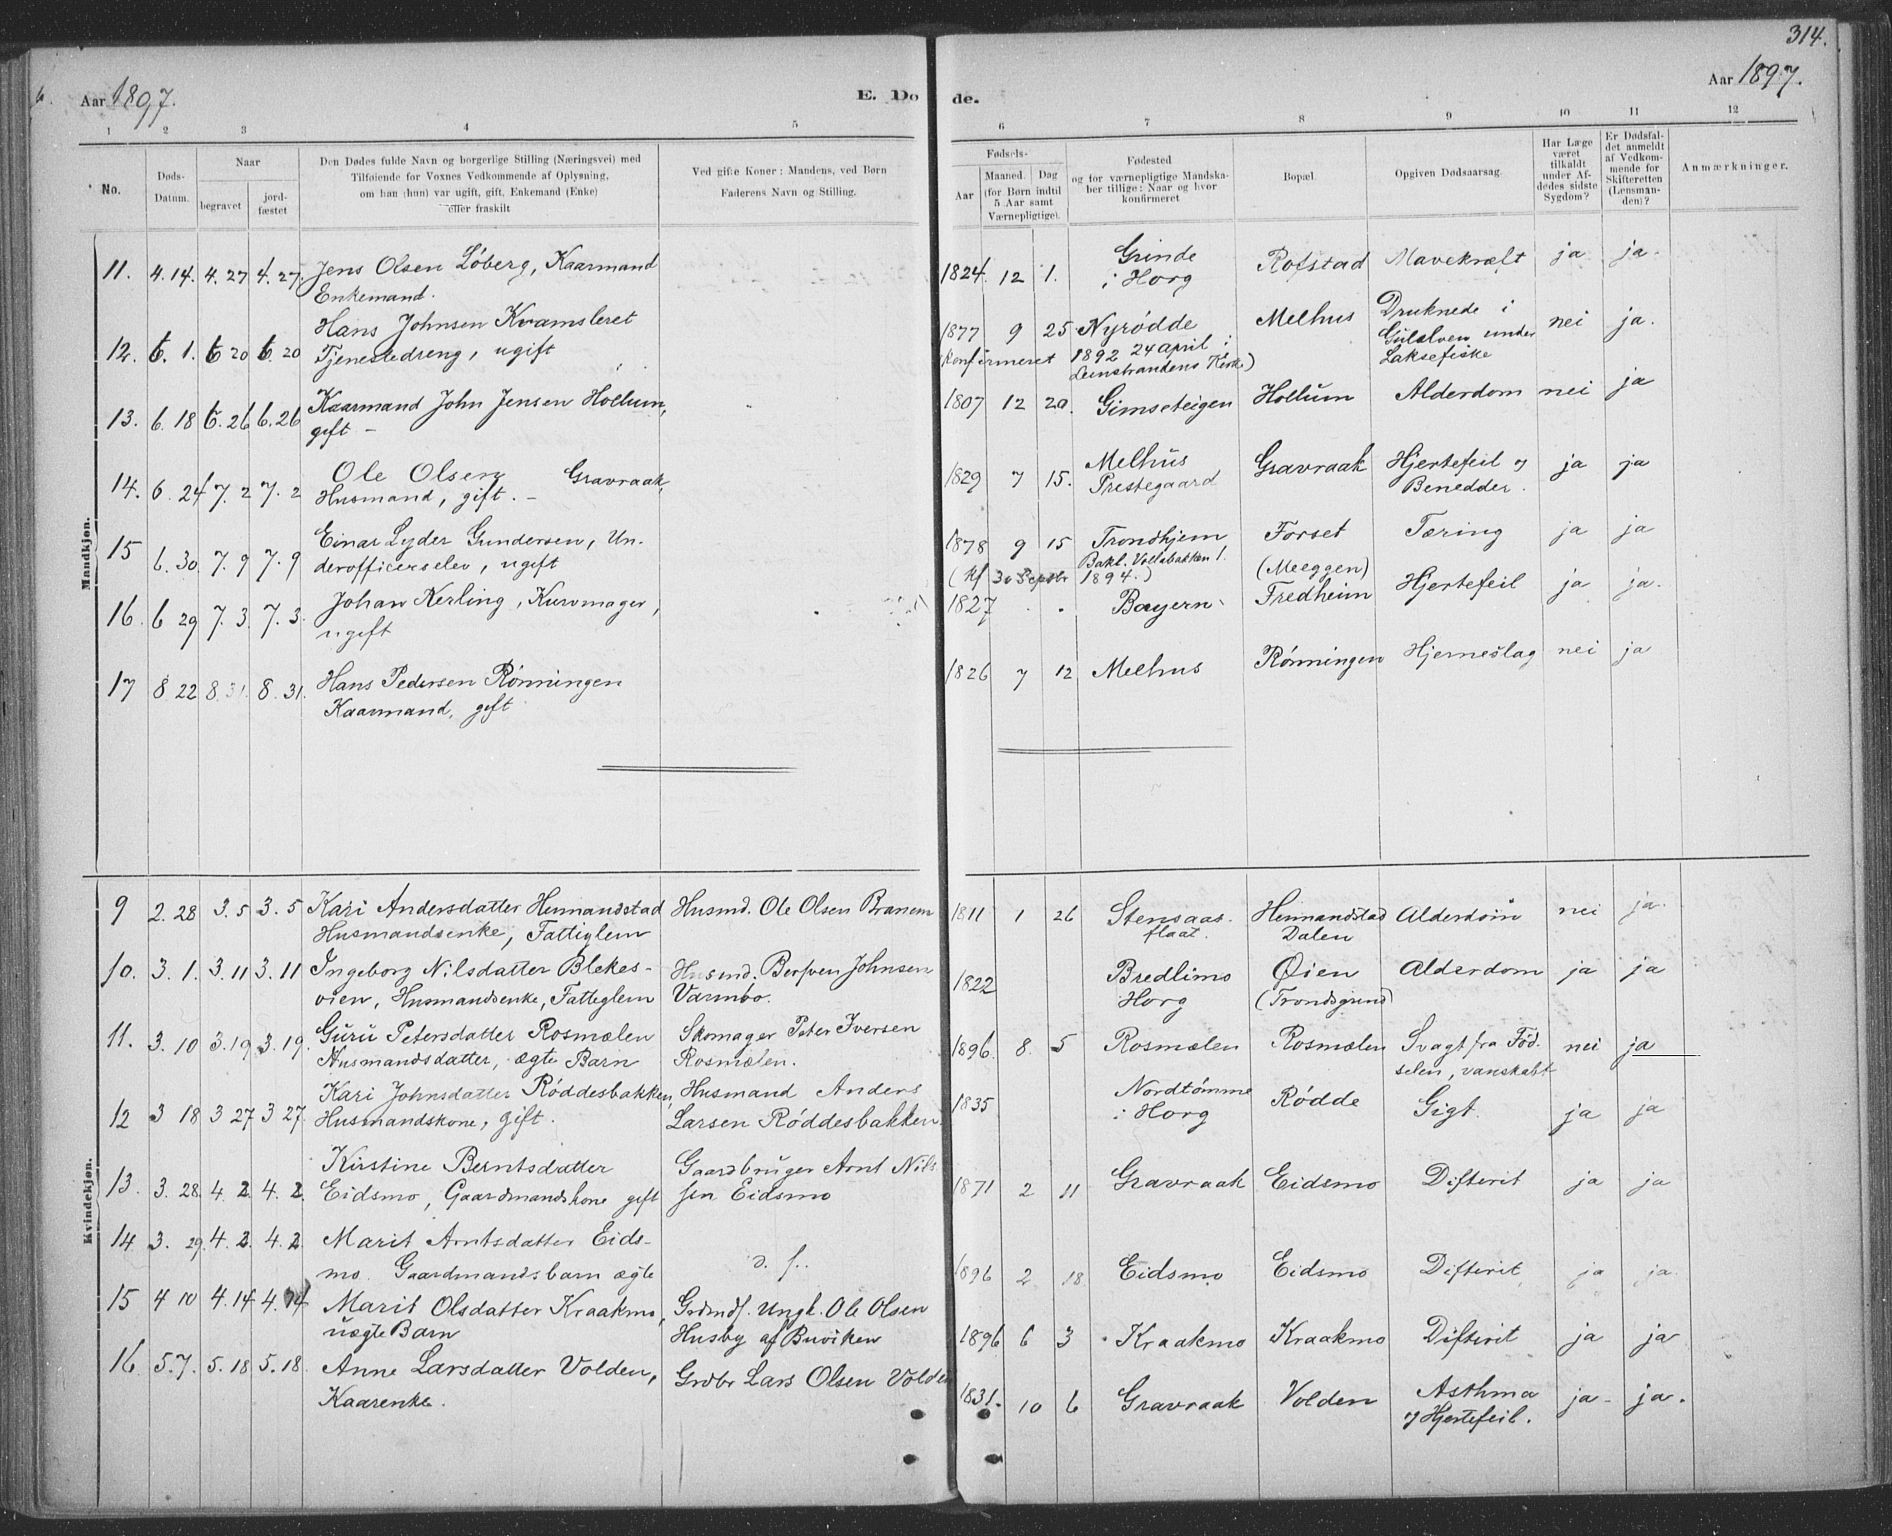 314.
Aar 1897. E. Døde. Aar 1897.
1 2 3 4 5 6 7 8 9 10 11 12
No.
Døds-Datum.
Naar
begravet
jordfæstet
Den Dødes fulde Navn og borgerlige Stilling (Næringsvei) med
Tilføiende for Voxnes Vedkommende af Oplysning,
om han (hun) var ugift, gift, Enkemand (Enke)
eller fraskilt
Ved gifte Koner: Mandens, ved Børn
Faderens Navn og Stilling.
Fødsels-
Aar
Maaned. Dag
(for Børn indtil
5 Aar samt
Værnepligtige).
Fødested
og for værnepligtige Mandskaber tillige: Naar og hvor
konfirmeret
Bopæl.
Opgiven Dødsaarsag.
Har Læge
været
tilkaldt
under Afdødes sidste
Sygdom?
Er Dødsfaldet anmeldt
af Vedkommende for
Skifteretten
(Lensmanden)?
Anmærkninger.
Mandkjøn.
11. 4.14. 4.27 4.27. Jens Olsen Løberg, Kaarmand 1824. 12 1. Grinde Rofstad Mavekræft ja ja.
Enkemand. i Horg
12. 6. 1. 6 20 6 20 Hans Johnsen Kvamsleret 1877 9 25 Nyrødde Melhus Druknede i nei ja.
Tjenestedreng, ugift (konfirmeret 1892 24 april i Gulelven under
Leinstrandens Kirke) Laksefiske
13. 6. 18 6.26 6.26 Kaarmand John Jensen Hollum, 1807 12 20. Gimseteigen Hollum Alderdom nei ja
gift –
14. 6. 24 7. 2 7. 2 Ole Olsen Gravraak, 1829 7 15. Melhus Gravraak Hjertefeil og ja ja
Husmand, gift. – Prestegaard Benedder.
15 6. 30. 7. 9 7. 9 Einar Lyder Gundersen, Un- 1878 9 15 Trondhjem Forset Tæring ja ja
derofficerselev, ugift Bakl. Vollabakken 1. (Meeggen)
(Kf 30 Septbr 1894.)
16. 6 29 7. 3. 7. 3. Johan Kerling, Kurvmager, 1827 . . Bayern Fredheim Hjertefeil ja ja.
ugift
17 8 22 8.31. 8.31. Hans Pedersen Rønningen 1826 7 12 Melhus Rønningen Hjerneslag nei ja
Kaarmand, gift
Kvindekjøn.
9 2.28 3.5 3.5 Kari Andersdatter Hermandstad Husmd. Ole Olsen Branem 1811 1 26 Stensaas- Hermandstad Alderdom nei ja.
Husmandsenke, Fattiglem flaat. Dalen
10. 3. 1. 3.11 3.11 Ingeborg Nilsdatter Blekes- Husmd. Berfven Johnsen 1822 Bredlimo Øien Alderdom ja ja
øien, Husmandsenke, Fattiglem Varmbo. Horg (Trondsgrind)
11. 3. 10 3.19 3.19. Guru Petersdatter Rosmælen Skomager Peter Iversen 1896. 8. 5 Rosmælen Rosmælen Svagt fra Fød. nei ja
Husmandsdatter, ægte Barn Rosmælen. selen, vanskabt
12 3 18 3 27 3 27. Kari Johnsdatter Røddesbakken, Husmand Anders 1835 Nordtømme Rødde Gigt. ja ja
Husmandskone, gift. Larsen Røddesbakken i Horg
13. 3. 28. 4. 2 4. 2. Kirstine Berntsdatter Gaardbruger Arnt Nils- 1871 2 11 Gravraak Eidsmo Difterit ja ja
Eidsmo, Gaardmandskone gift sen Eidsmo
14 3. 29. 4. 2. 4. 2. Marit Arntsdatter Eids- d. f.. 1896 2 18 Eidsmo Eidsmo Difterit ja ja.
mo. Gaardmandsbarn ægte
15 4 10 4.14 4.14 Marit Olsdatter Kraakmo, Grdmdf. Ungk. Ole Olsen 1896 6 3 Kraakmo Kraakmo Difterit ja ja
uægte Barn Husby af Buviken
16 5.7. 5.18 5.18. Anne Larsdatter Volden, Grdbr Lars Olsen Volden 1831. 10 6 Gravraak Volden Asthma ja – ja.
Kaarenke. og Hjertefeil.